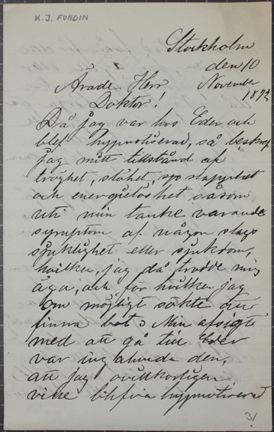 K. J. FUNDIN
Stockholm
den 10
November
Ärade Herr
1893
Doktor!
Då jag var hos Eder och
blef hypnotiserad, så beskref
jag mitt tillstånd af
tröghet, slöhet,
och energilöshet såsom
uti min tanke varande
symptom af någon slags
sjuklighet eller sjukdom,
hvilken, jag då trodde mig
äga, och för hvilken jag
om möjligt sökte att
finna bot. Min afsigt
med att gå till Eder
var ju den,
att jag ovillkorligen
ville blifva hypnotiserad
31